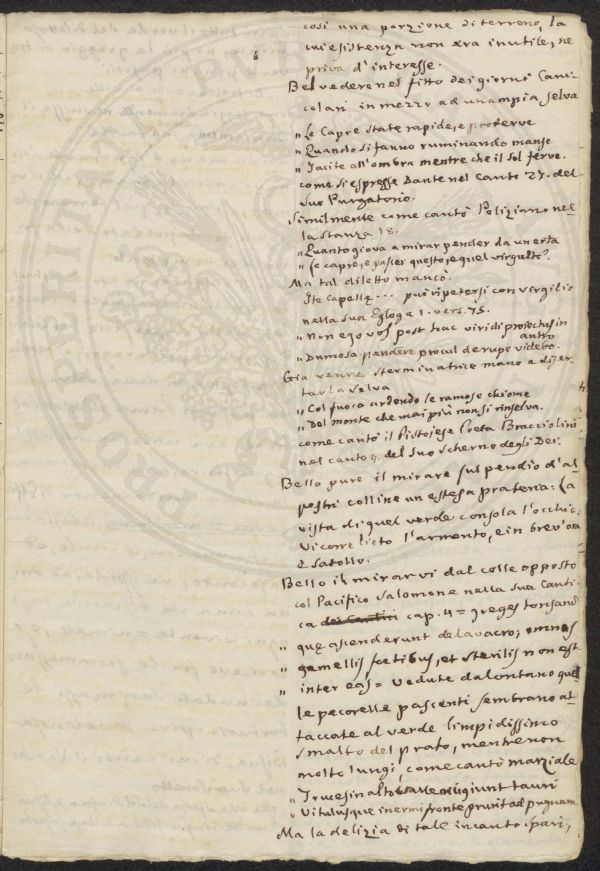 così una porzione di terreno, la
cui esistenza non era inutile, ne
priva d'interesse.
Bel vedere nel fitto dei giorni Cani-
colari in mezzo ad un ampia selva
„ Le Capre state rapide, e proterve
„ Quando si fanno ruminando manse
„ Tacite all'ombra mentre che il sol ferve.
come si espresse Dante nel Canto 27. del
suo Purgatorio.
Similmente come cantò Poliziano nel-
la stanza 18.
„ Quanto giova a mirar pender da un erta
„ Le capre, e pascer questo, e quel virgulto.
Ma tal diletto mancò.
Ite Capellę... può ripetersi con virgilio
nella sua Egloga 1. vers. 75.
„ Non ego vos post hac viridi projectus in
antro
„ Dumosa pendere procul de rupe videbo.
Già venne sterminatrice mano a diser-
tar la selva
„ Col fuoco ardendo le ramose chiome
„ Del monte che mai più non si rinselva.
come cantò il Pistojese Poeta Bracciolini
nel canto 4. del suo scherno degli Dei.
Bello pure il mirare sul pendio d'al-
pestri colline un estesa prateria: La
vista di quel verde consola l'occhio:
Vi corre lieto l'armento, e in brev'ora
è satollo.
Bello il mirarvi dal colle opposto
col Pacifico Salomone nella sua Canti-
ca cap. 4 = greges tonsarum
„ quę ascenderunt de lavacro; omnes
„ gemellis foetibus, et sterilis non est
„ inter eas = vedute da lontano quel-
le pecorelle pascenti sembrano at-
taccate al verde limpidissimo
smalto del prato, mentre non
molto lungi, come cantò marziale
„ Truces in alto mugiunt tauri
„ Vitulusque inermi fronte prurit ad pugnam.
Ma la delizia di tale incanto sparì,